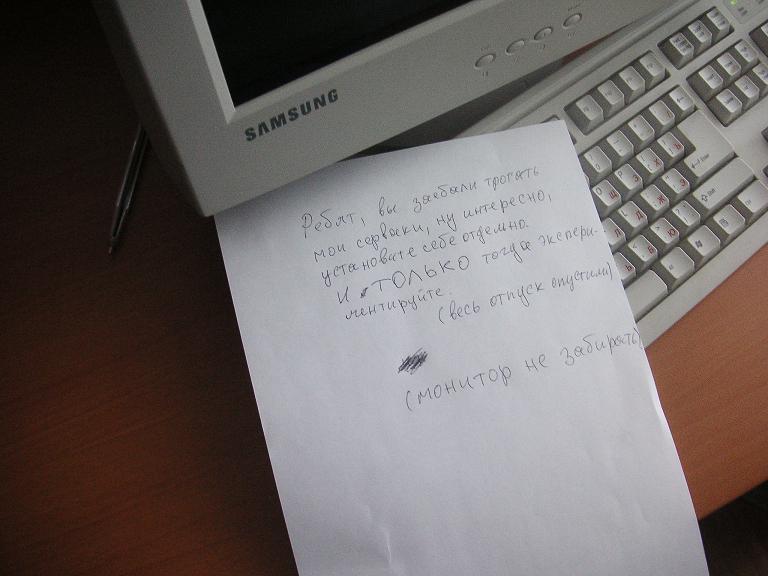 SAMSUNG
Ребят, вы заебали трогать
мои серваки, ну интересно,
установите себе отдельно.
И ТОЛЬКО тогда экспери-
ментируйте.
(весь отпуск опустили)
(монитор не забирать)